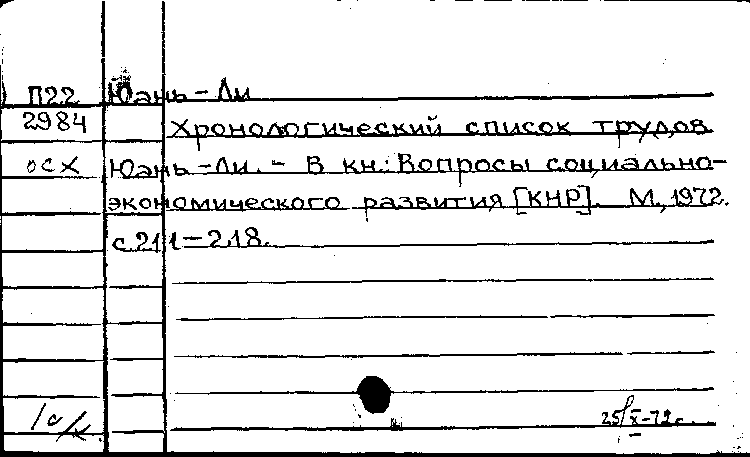 П22 Юань-Ли
2984 Хронологический список трудов
осх Юань-Ли. - В кн.: Вопросы социально-
экономического развития [КНР]. М., 1972.
с. 211-218.
25/X-72г.